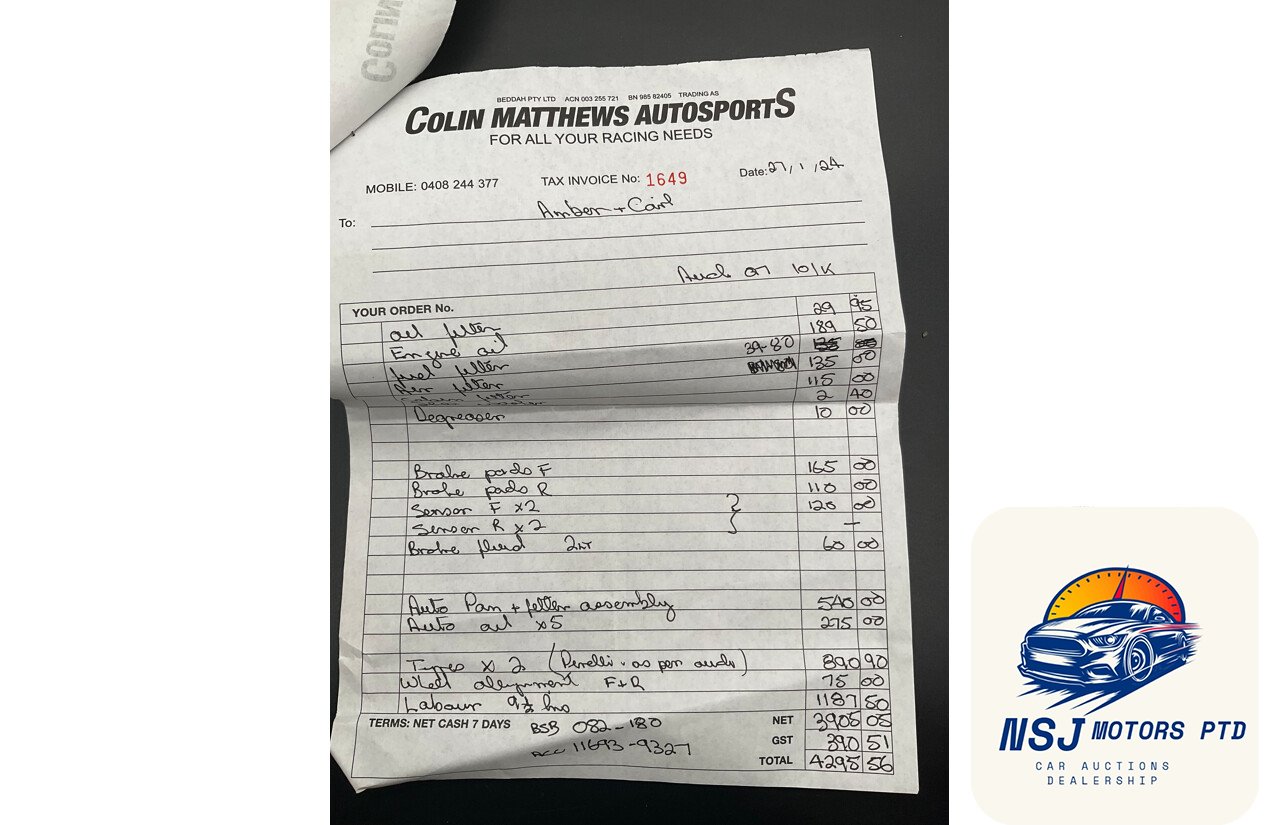 BEDDAH PTY LTD ACN 003 255 721 BN 985 82405 TRADING AS
COLIN MATTHEWS AUTOSPORTS
FOR ALL YOUR RACING NEEDS
MOBILE: 0408 244 377 TAX INVOICE No: 1649 Date: 27/1/24
To: Amber +
10/K
YOUR ORDER No.
oil filter 29 95
Engine oil 189 50
fuel filter 39-80
Air filter 135 00
filter 115 00
2 40
Degreaser 10 00
Brake pads F 165 00
Brake pads R 110 00
Sensor F x2 120 00
Sensor R x2 —
Brake fluid 60 00
Auto Pan + filter assembly 540 00
Auto oil x5 275 00
Tyres x 2 (Perelli - as per audi) 890 90
Wheel alignment F+R 75 00
Labour 9½ hrs 1187 50
TERMS: NET CASH 7 DAYS BSB 082-180 NET 3905 05
ACC 11693-9327 GST 390 51
TOTAL 4295 56
NSJ MOTORS PTD
CAR AUCTIONS
DEALERSHIP